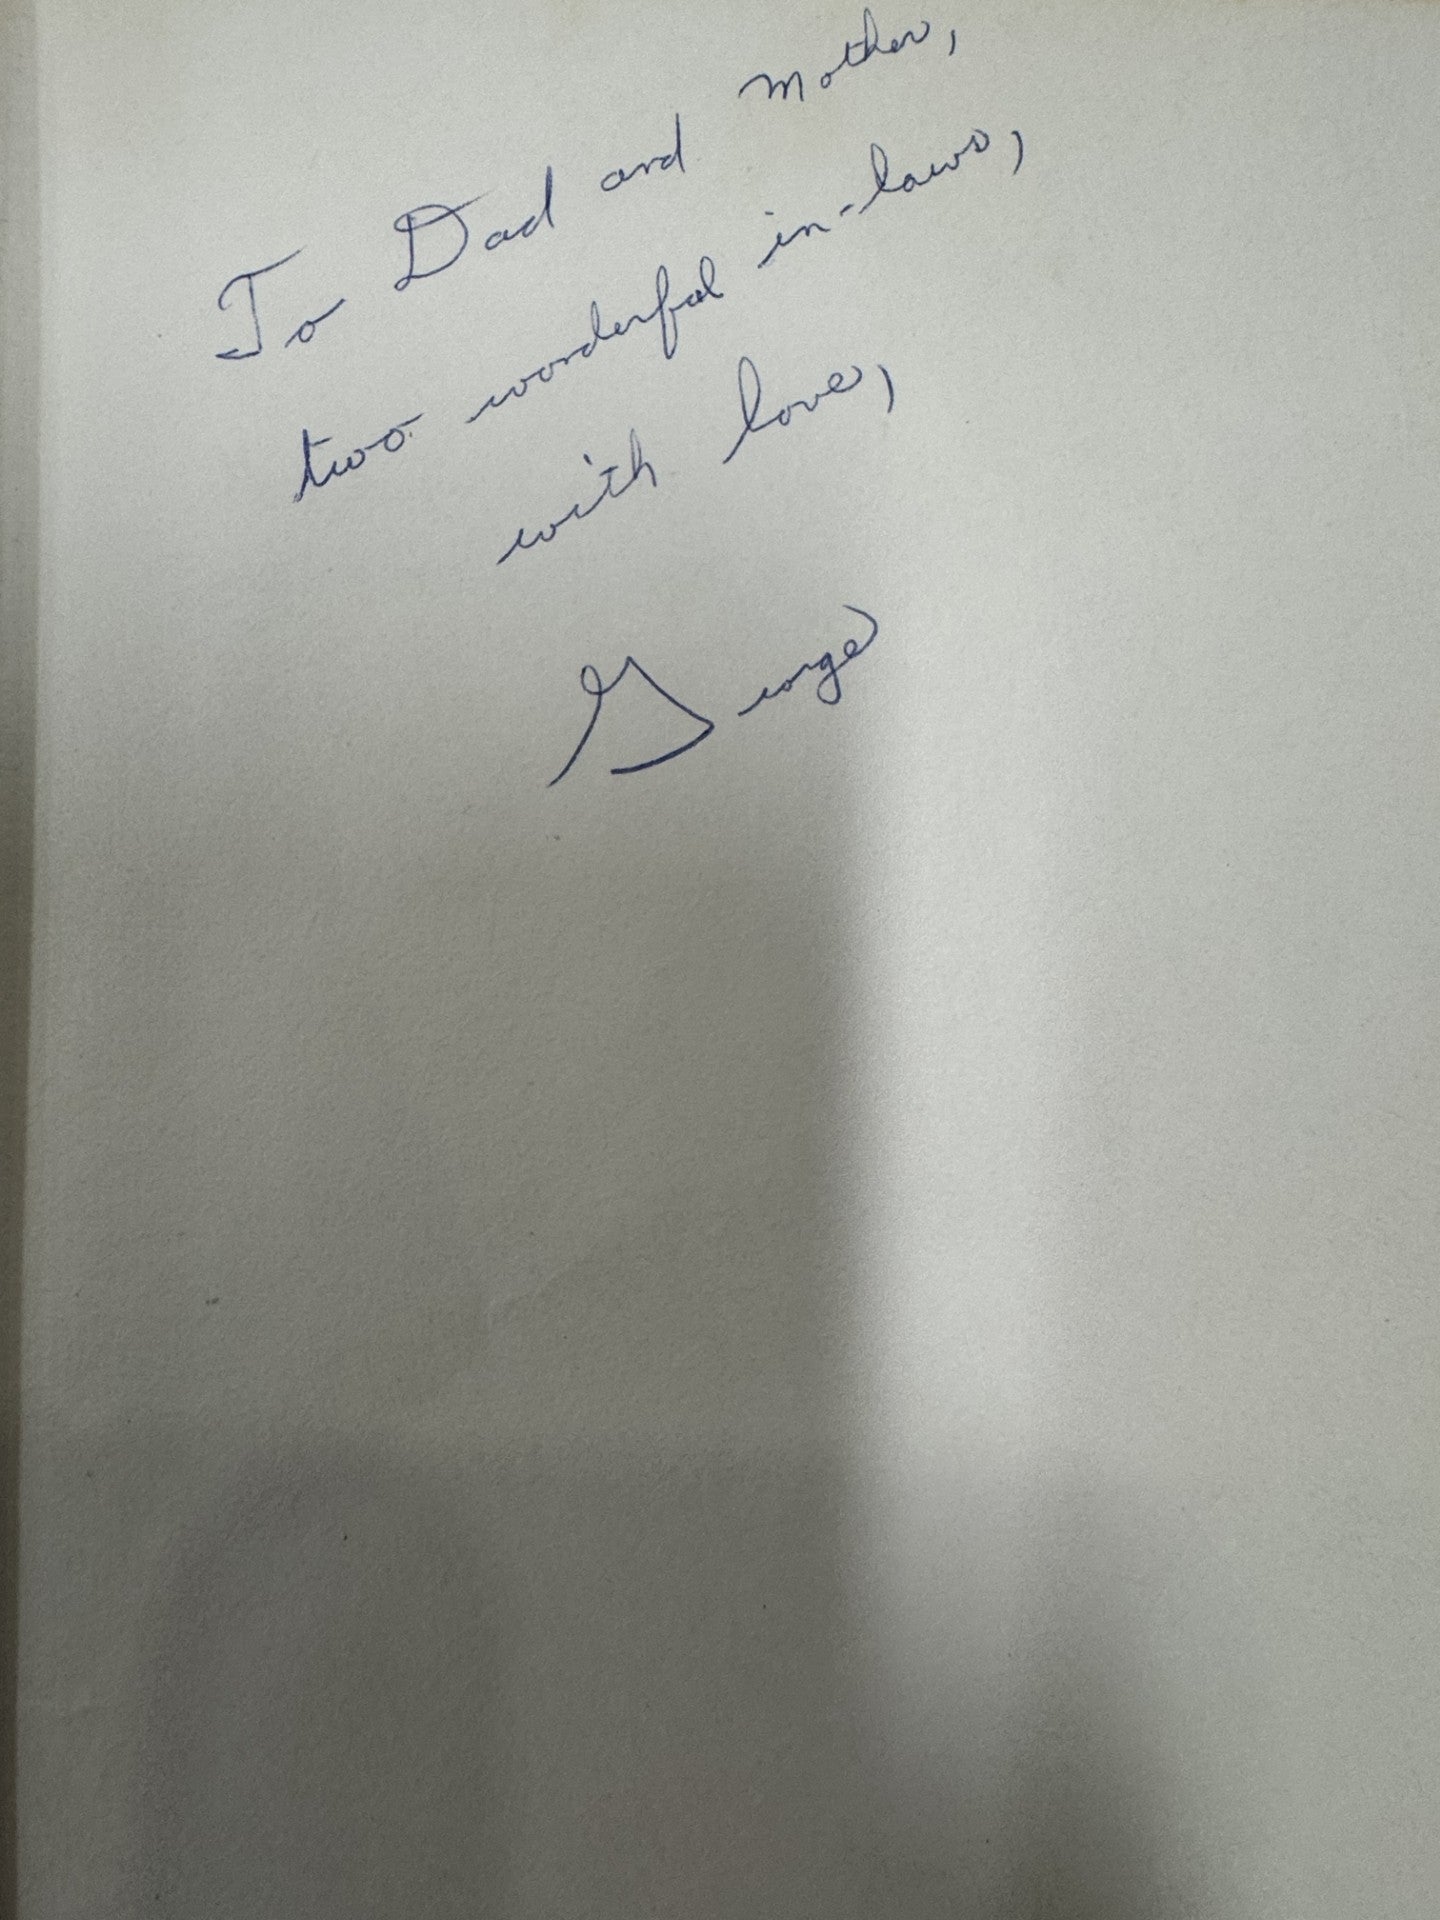 To Dad and Mother,
two wonderful in-laws,
with love,
George